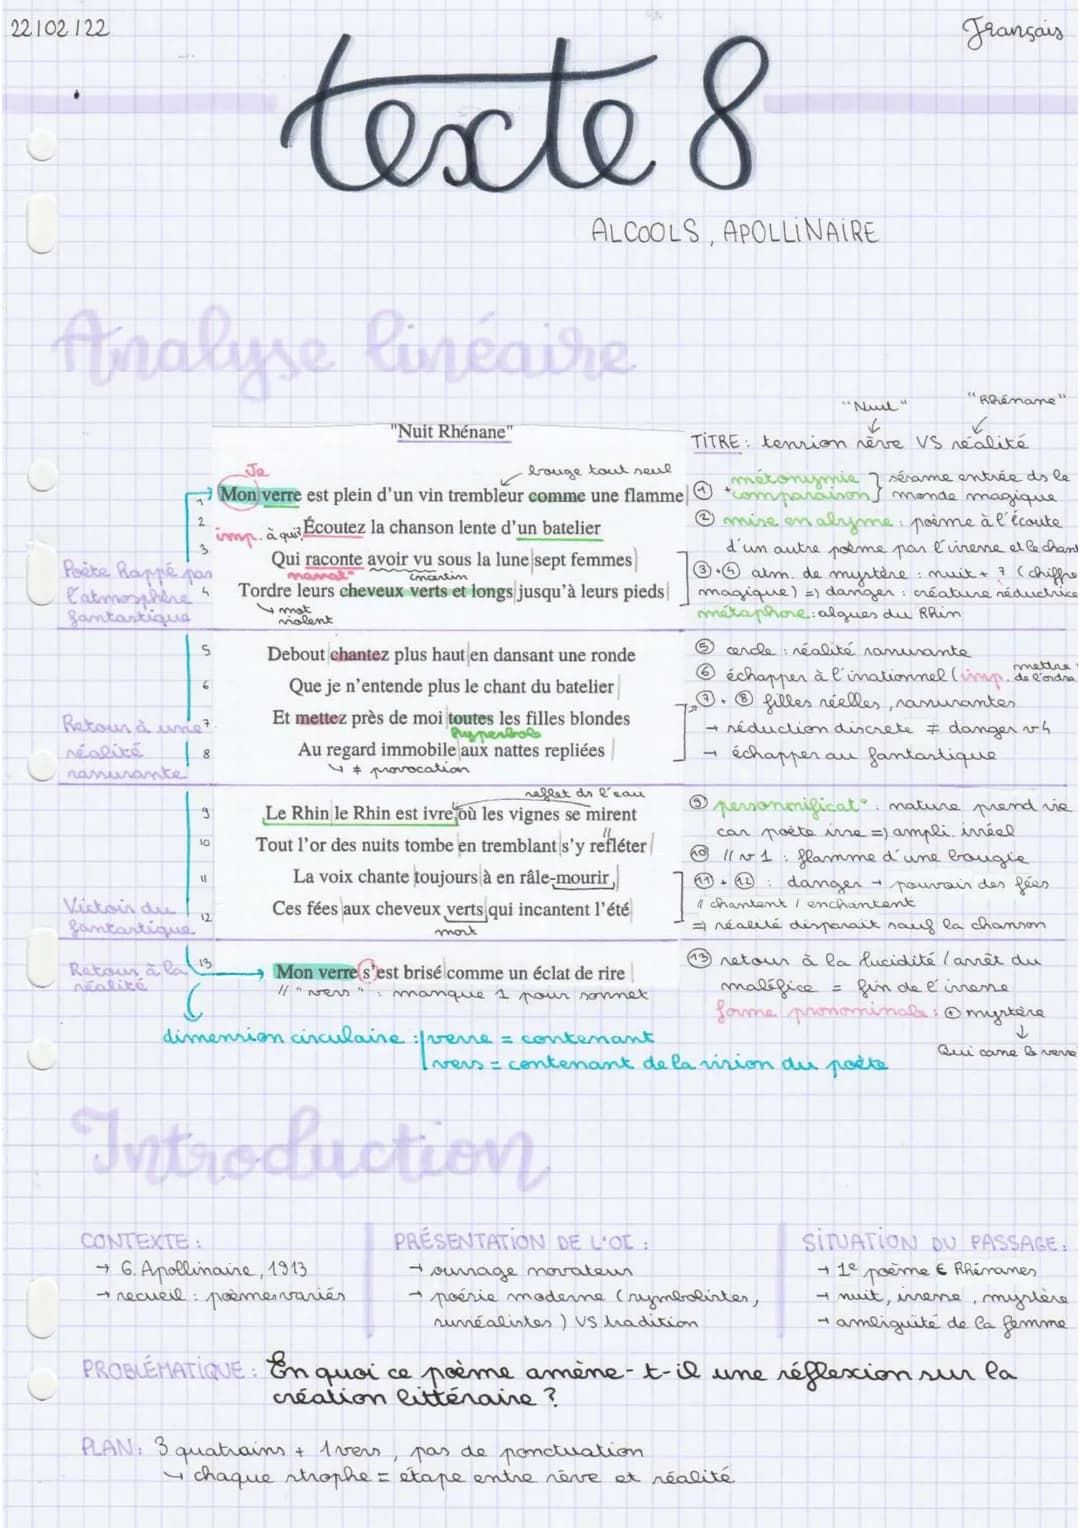 22/02/22
Français
texte 8
ALCOOLS, APOLLINAIRE
Analyse linéaire
"Nuit" "Rhénane"
TITRE : tension rêve VS réalité
"Nuit Rhénane"
Je
bouge tout seul
1 Mon verre est plein d'un vin trembleur comme une flamme
2 Écoutez la chanson lente d'un batelier
imp. à qui?
3 Qui raconte avoir vu sous la lune sept femmes
narrat° incertain
4 Tordre leurs cheveux verts et longs jusqu'à leurs pieds
mot violent
Poète happé par
l'atmosphère
fantastique
① métonymie + comparaison } sésame entrée ds le monde magique
② mise en abyme : poème à l'écoute
d'un autre poème par l'ivresse et le chant
③+④ atm. de mystère : nuit + 7 (chiffre
magique) => danger : créature séductrice
métaphore : algues du Rhin
5 Debout chantez plus haut en dansant une ronde
6 Que je n'entende plus le chant du batelier
7 Et mettez près de moi toutes les filles blondes
hyperbole
8 Au regard immobile aux nattes repliées
≠ provocation
Retour à une
réalité
rassurante
⑤ cercle : réalité rassurante
⑥ échapper à l'irrationnel (imp. mettre de l'ordre
⑦+⑧ filles réelles, rassurantes
→ séduction discrete ≠ danger v4
→ échapper au fantastique
reflet ds l'eau
9 Le Rhin le Rhin est ivre où les vignes se mirent
10 Tout l'or des nuits tombe en tremblant s'y refléter
11 La voix chante toujours à en râle-mourir
12 Ces fées aux cheveux verts qui incantent l'été
mort
Victoir du
fantastique
⑨ personnificat° : nature prend vie
car poète ivre => ampli. irréel
⑩ // v1 : flamme d'une bougie
⑪+⑫ : danger → pouvoir des fées
// chantent / enchantent
=> réalité disparait sauf la chanson
Retour à la
réalité
13 Mon verre s'est brisé comme un éclat de rire
// "vers" : manque 1 pour sonnet
⑬ retour à la lucidité / arrêt du
maléfice = fin de l'ivresse
forme pronominale : ⊕ mystère
Qui casse le verre
dimension circulaire : verre = contenant
vers = contenant de la vision du poète
Introduction
CONTEXTE :
→ G. Apollinaire, 1913
→ recueil : poèmes variés
PRÉSENTATION DE L'OI :
→ ouvrage novateur
→ poésie moderne (symbolistes,
surréalistes) VS tradition
SITUATION DU PASSAGE :
→ 1e poème ∈ Rhénanes
→ nuit, ivresse, mystère
→ ambiguïté de la femme
PROBLÉMATIQUE : En quoi ce poème amène-t-il une réflexion sur la
création littéraire ?
PLAN : 3 quatrains + 1 vers, pas de ponctuation
↳ chaque strophe = étape entre rêve et réalité